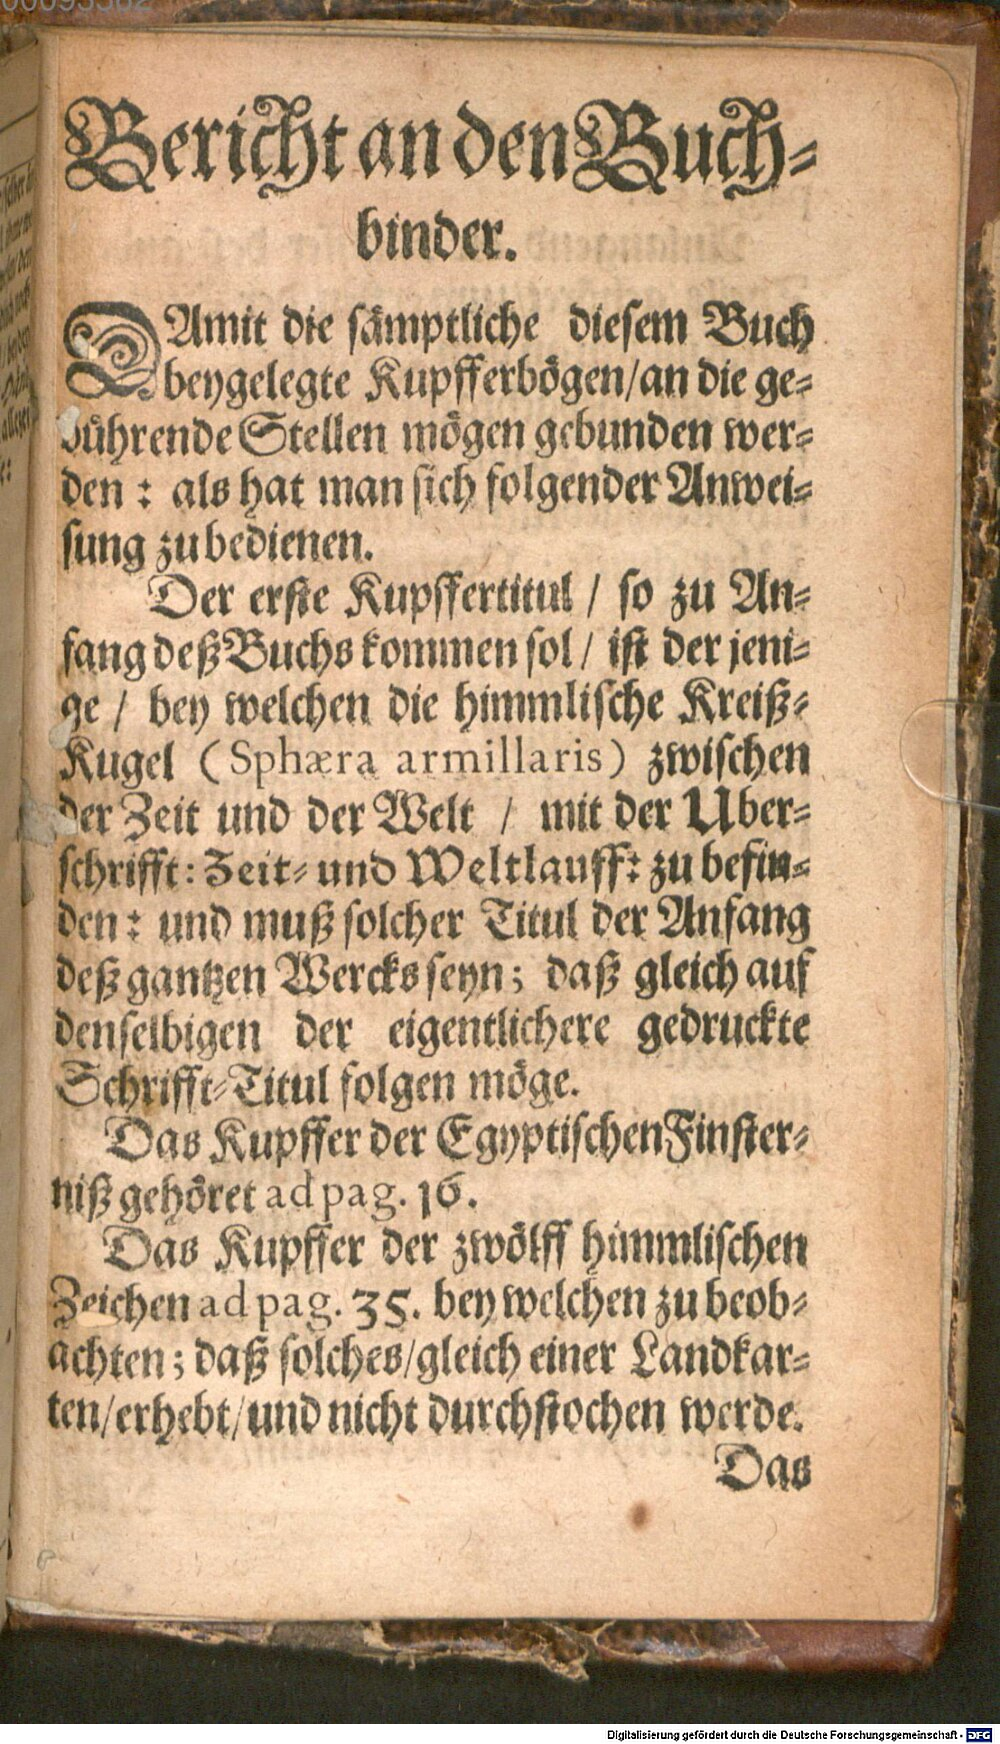 00093362
Bericht an den Buch-
binder.
DAmit die sämptliche diesem Buch
beygelegte Kupfferbögen/an die ge-
bührende Stellen mögen gebunden wer-
den : als hat man sich folgender Anwei-
sung zu bedienen.
Der erste Kupffertitul / so zu An-
fang deß Buchs kommen sol / ist der jeni-
ge / bey welchen die himmlische Kreiß-
Kugel (Sphæra armillaris) zwischen
der Zeit und der Welt / mit der Uber-
schrifft: Zeit- und Weltlauff: zu befin-
den : und muß solcher Titul der Anfang
deß gantzen Wercks seyn; daß gleich auf
denselbigen der eigentlichere gedruckte
Schrifft-Titul folgen möge.
Das Kupffer der Egyptischen Finster-
niß gehöret ad pag. 16.
Das Kupffer der zwölff himmlischen
Zeichen ad pag. 35. bey welchen zu beob-
achten; daß solches/gleich einer Landkar-
ten/erhebt/und nicht durchstochen werde.
Das
Digitalisierung gefördert durch die Deutsche Forschungsgemeinschaft - DFG